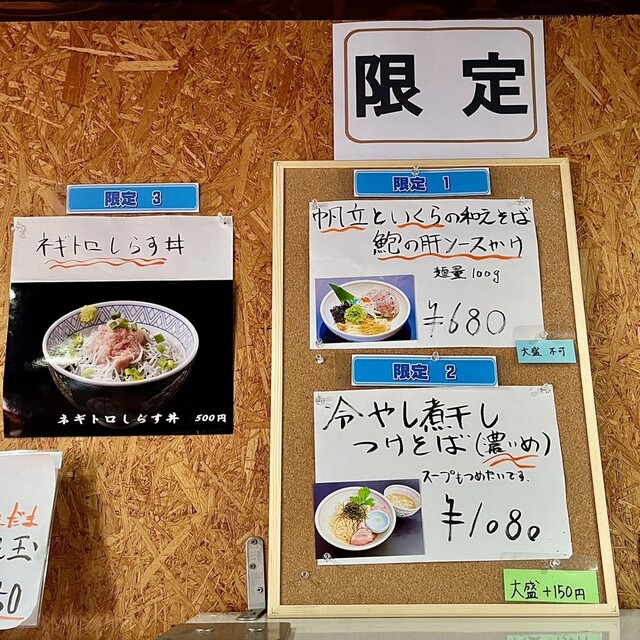 限定
限定 1
帆立といくらの和えそば
鮑の肝ソースかけ
麺量100g
¥680
大盛 不可
限定 2
冷やし煮干し
つけそば(濃いめ)
スープもつめたいです。
¥1080
大盛+150円
限定 3
ネギトロしらす丼
ネギトロしらす丼 500円
だま
玉
50